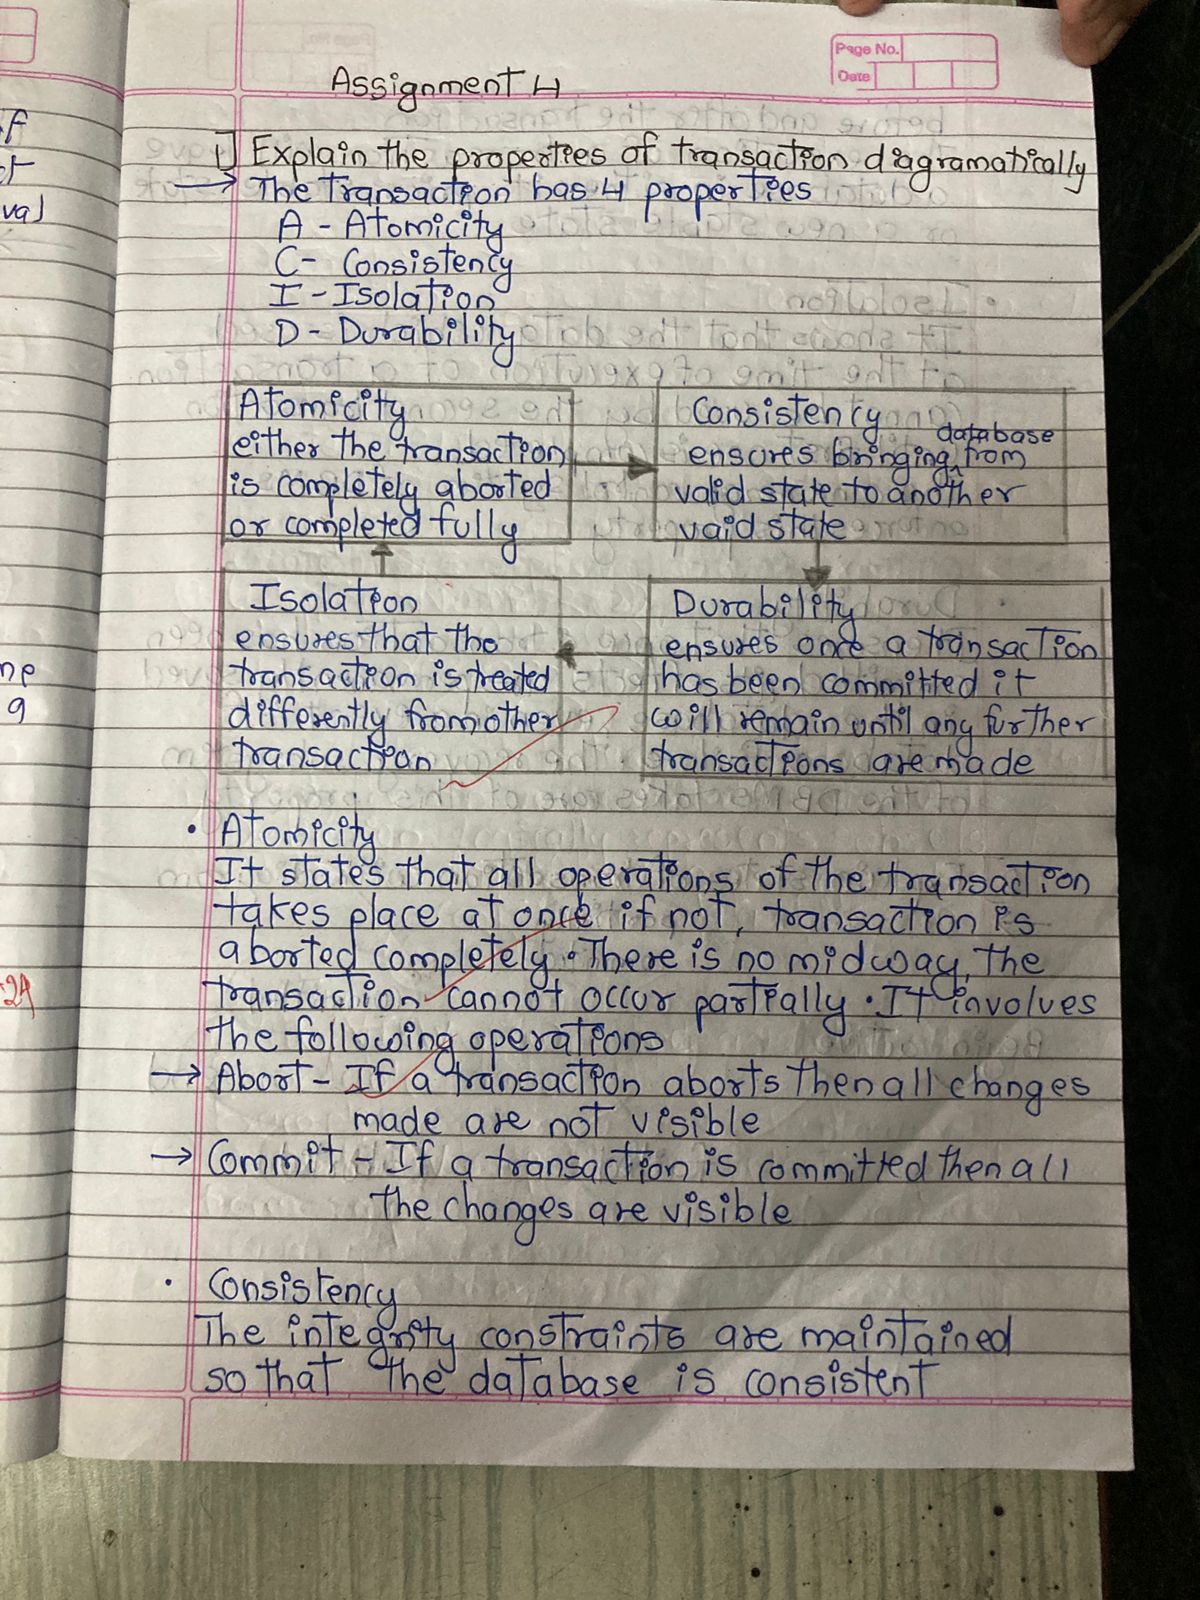 Page No.
Date
Assignment 4
1] Explain the properties of transaction diagramatically
→ The transaction has 4 properties
A - Atomicity
C- Consistency
I - Isolation
D - Durability
Atomicity
either the transaction
is completely aborted
or completed fully
Consistency
database
ensures bringing from
valid state to another
vaid state
Isolation
ensures that the
transaction is treated
differently from other
transaction
Durability
ensures once a transaction
has been committed it
will remain until any further
transactions are made
• Atomicity
It states that all operations of the transaction
takes place at once if not, transaction is
aborted completely. There is no midway, the
transaction cannot occur partially. It involves
the following operations
→ Abort - If a transaction aborts then all changes
made are not visible
→ Commit - If a transaction is committed then all
the changes are visible
• Consistency
The integrity constraints are maintained
so that the database is consistent